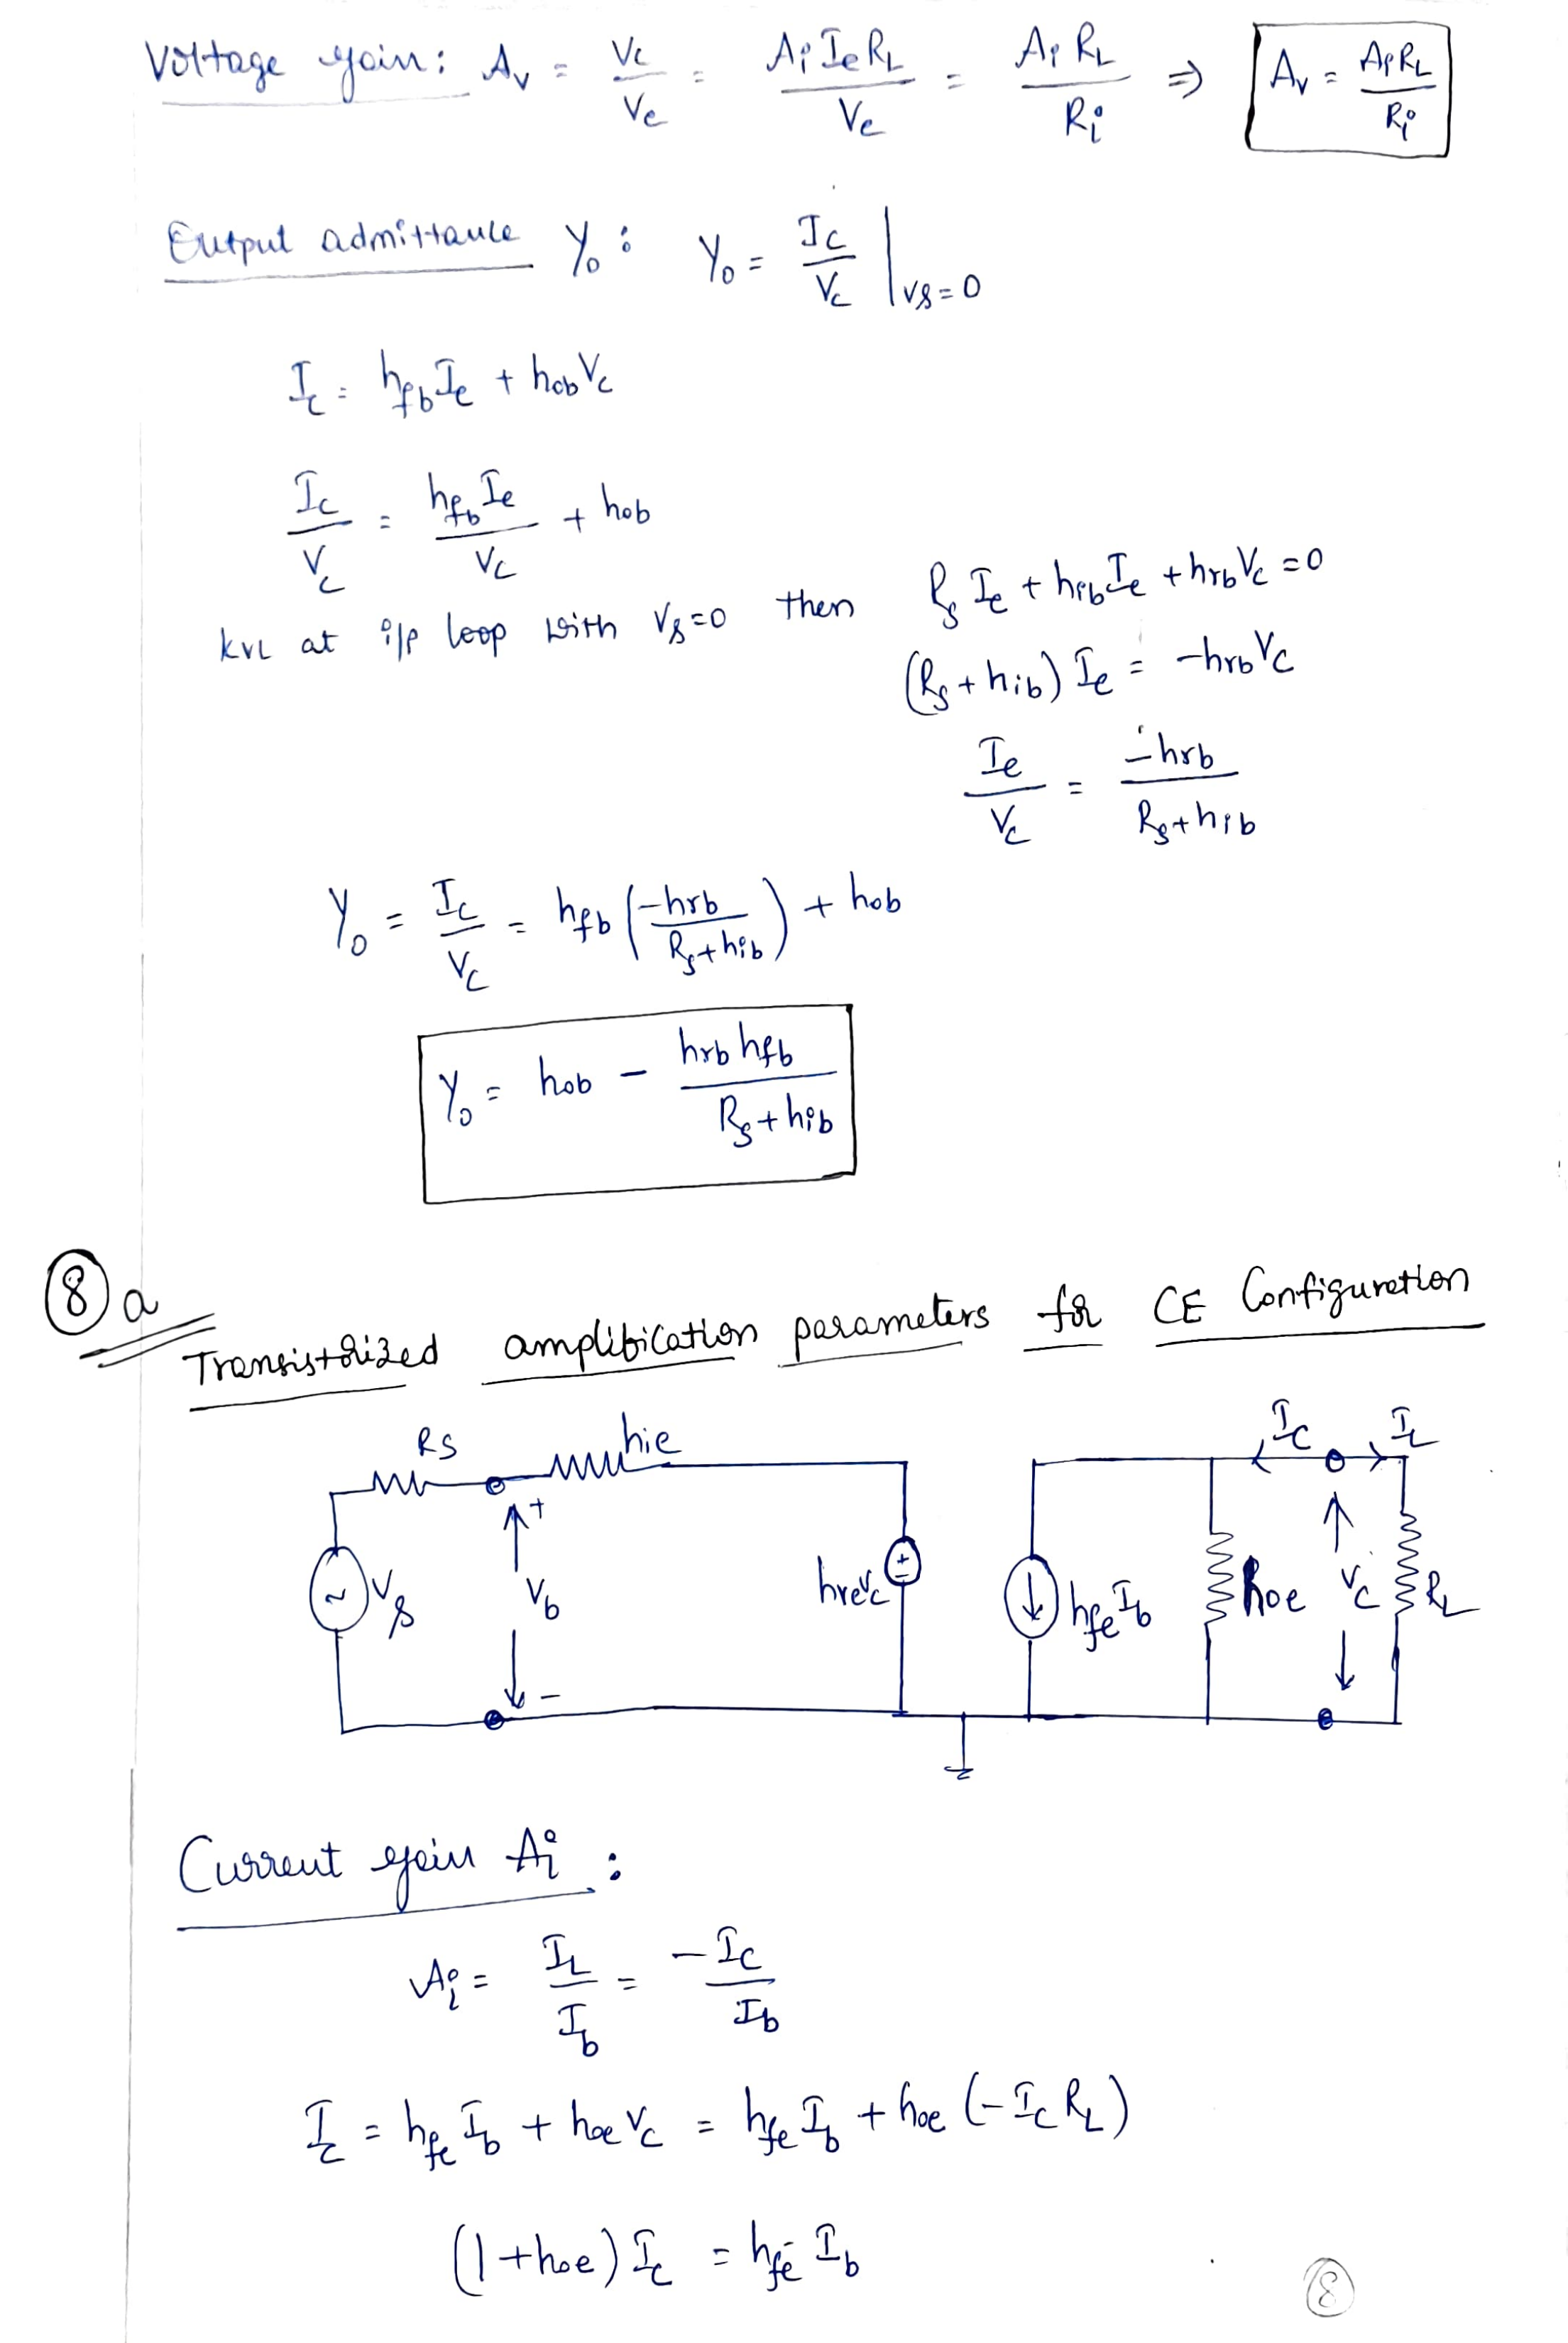 Voltage gain: Av = Vc/Ve = Ai Ie RL/Ve = Ai RL/Ri ⇒ Av = Ai RL/Ri
Output admittance Yo: Yo = Ic/Vc | Vs=0
Ic = hfb Ie + hob Vc
Ic/Vc = hfb Ie/Vc + hob
KVL at i/p loop with Vs=0 then Rs Ie + hib Ie + hrb Vc = 0
(Rs + hib) Ie = -hrb Vc
Ie/Vc = -hrb/Rs+hib
Yo = Ic/Vc = hfb (-hrb/Rs+hib) + hob
Yo = hob - hrb hfb/Rs+hib
8 a
Transistorized amplification parameters for CE Configuration
Rs hie Ic IL
+
Vs Vb hreVc + - hfe Ib hoe Vc RL
-
Current gain Ai :
Ai = IL/Ib = -Ic/Ib
Ic = hfe Ib + hoe Vc = hfe Ib + hoe (-Ic RL)
(1 + hoe) Ic = hfe Ib
8